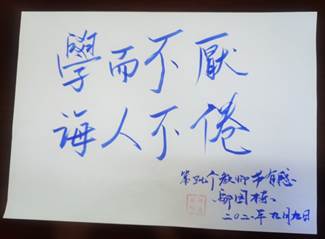 學而不厭
诲人不倦
第37个教师节有感
国栋
二〇二一年九月九日